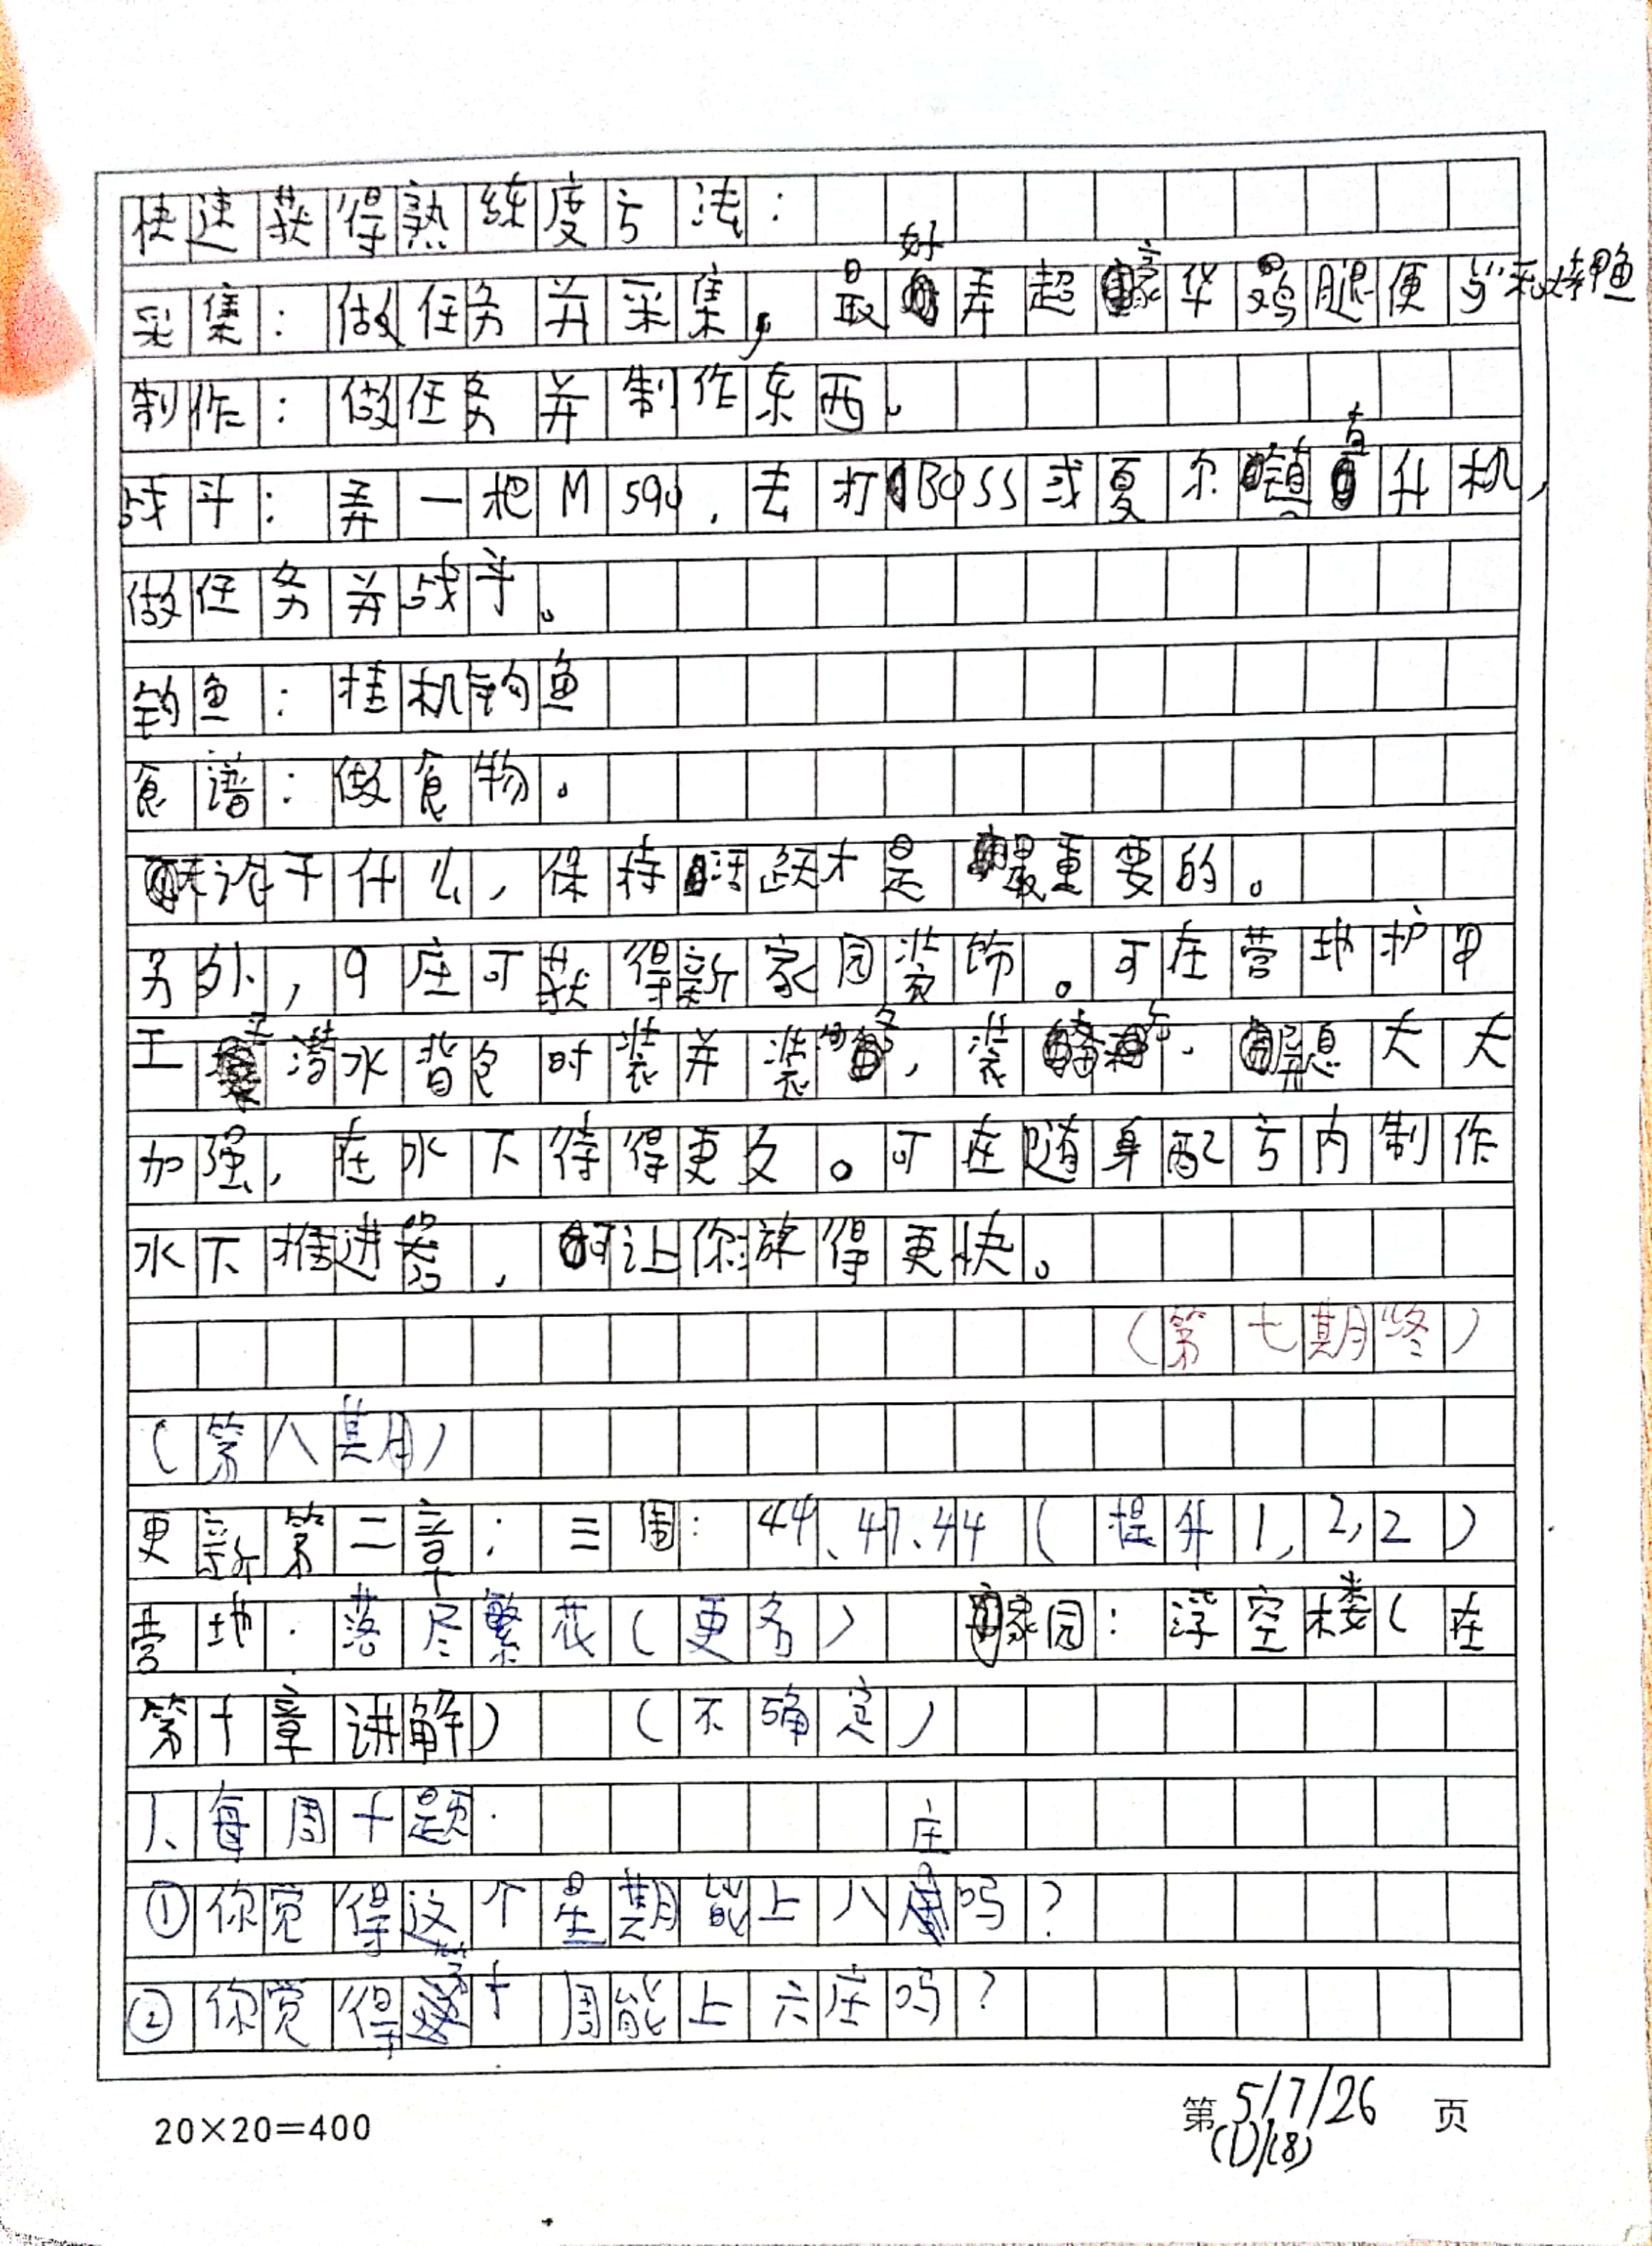 快速获得熟练度方法:
采集:做任务并采集,最好弄超豪华鸡腿便当和烤鱼
制作:做任务并制作东西。
战斗:弄一把M590,去打BOSS或夏尔镇直升机,
做任务并战斗。
钓鱼:挂机钓鱼
食谱:做食物。
无论干什么,保持活跃才是最重要的。
另外,9庄可获得新家园装饰。可在营地护甲
工 潜水背包时装并装备,装 , 息大大
加强,在水下待得更久。可在随身配方内制作
水下推进器,可让你游得更快。
(第七期终)
(第八期)
更新第二章:三周:44、47、44(提升1,2,2)
营地:落尽繁花(更务) 家园:浮空楼(在
第十章讲解) (不确定)
1、每周十题:
①你觉得这个星期能上八庄吗?
②你觉得第十周能上六庄吗?
20×20=400
第5/7/26页
(1)/(8)